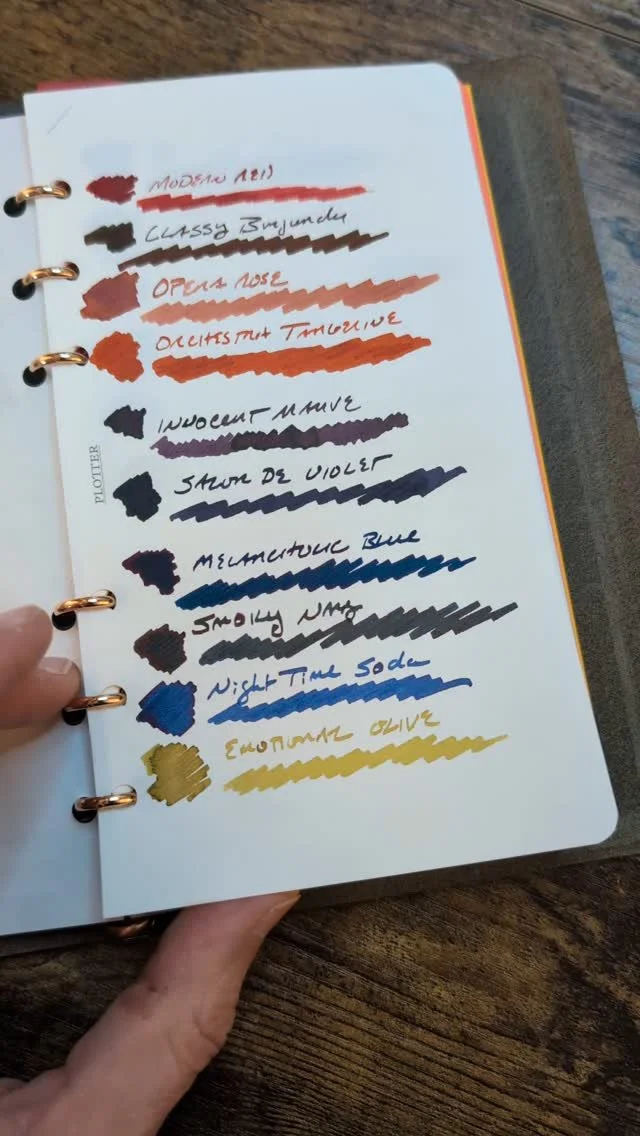 MODERN RED
CLASSY Burgundy
OPERA ROSE
ORCHESTRA TANGERINE
INNOCENT MAUVE
SALON DE VIOLET
MELANCHOLIC Blue
SMOKY NAVY
Night Time Soda
EMOTIONAL OLIVE
PLOTTER